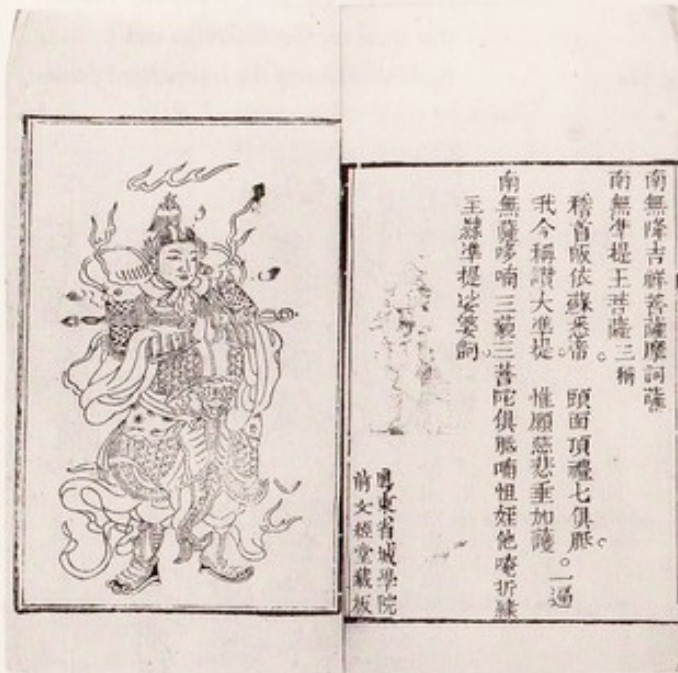 南無降吉祥菩薩摩訶薩
南無準提王菩薩 三稱
稽首皈依蘇悉帝。 頭面頂禮七俱胝。
我今稱讚大準提 惟願慈悲垂加護。 一遍
南無薩哆喃三藐三菩陀俱胝喃怛姪他唵折隸
主隸準提娑婆訶
粵東省城學院
前文經堂藏板